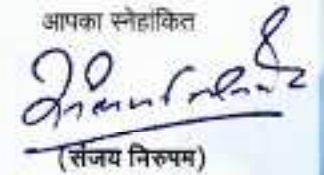 आपका स्नेहांकित
(संजय निरुपम)